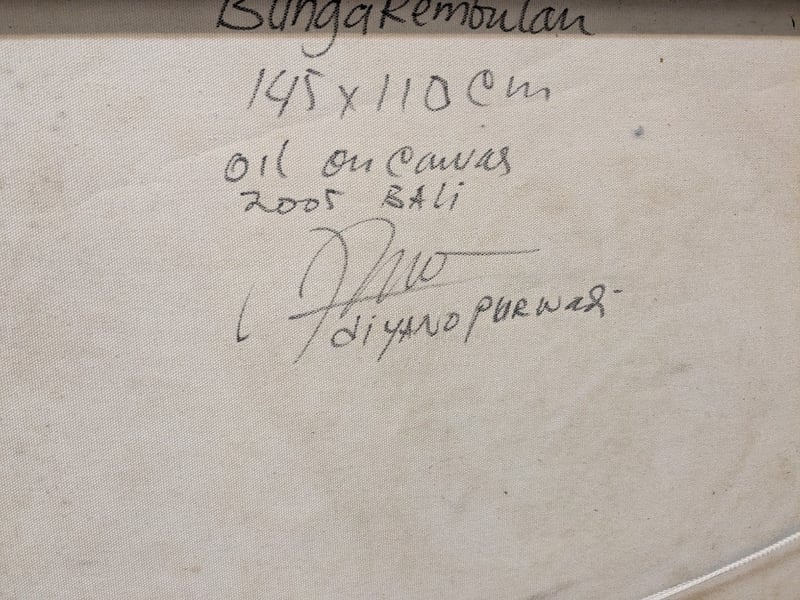 Bunga Kembulan
145 x 110 cm
oil on canvas
2005 BALi
diYANO PURWADi